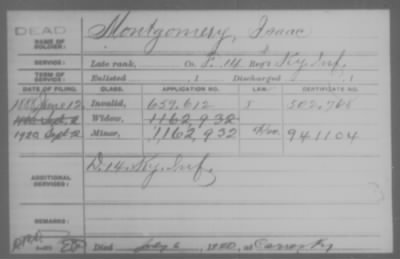 DEAD
NAME OF SOLDIER: Montgomery, Isaac
SERVICE: Late rank, Co. F. 14 Reg't Ky. Inf.
TERM OF SERVICE: Enlisted , 1 Discharged , 1
DATE OF FILING. CLASS. APPLICATION NO. LAW. CERTIFICATE NO.
1888 June 12 Invalid, 659,612 502,768
Sept. 2 Widow, 1162,932
1920 Sept. 2 Minor, 1,162,932 941104
ADDITIONAL SERVICES: D. 14. Ky. Inf.
REMARKS:
Died July 6, 1920, at Ky